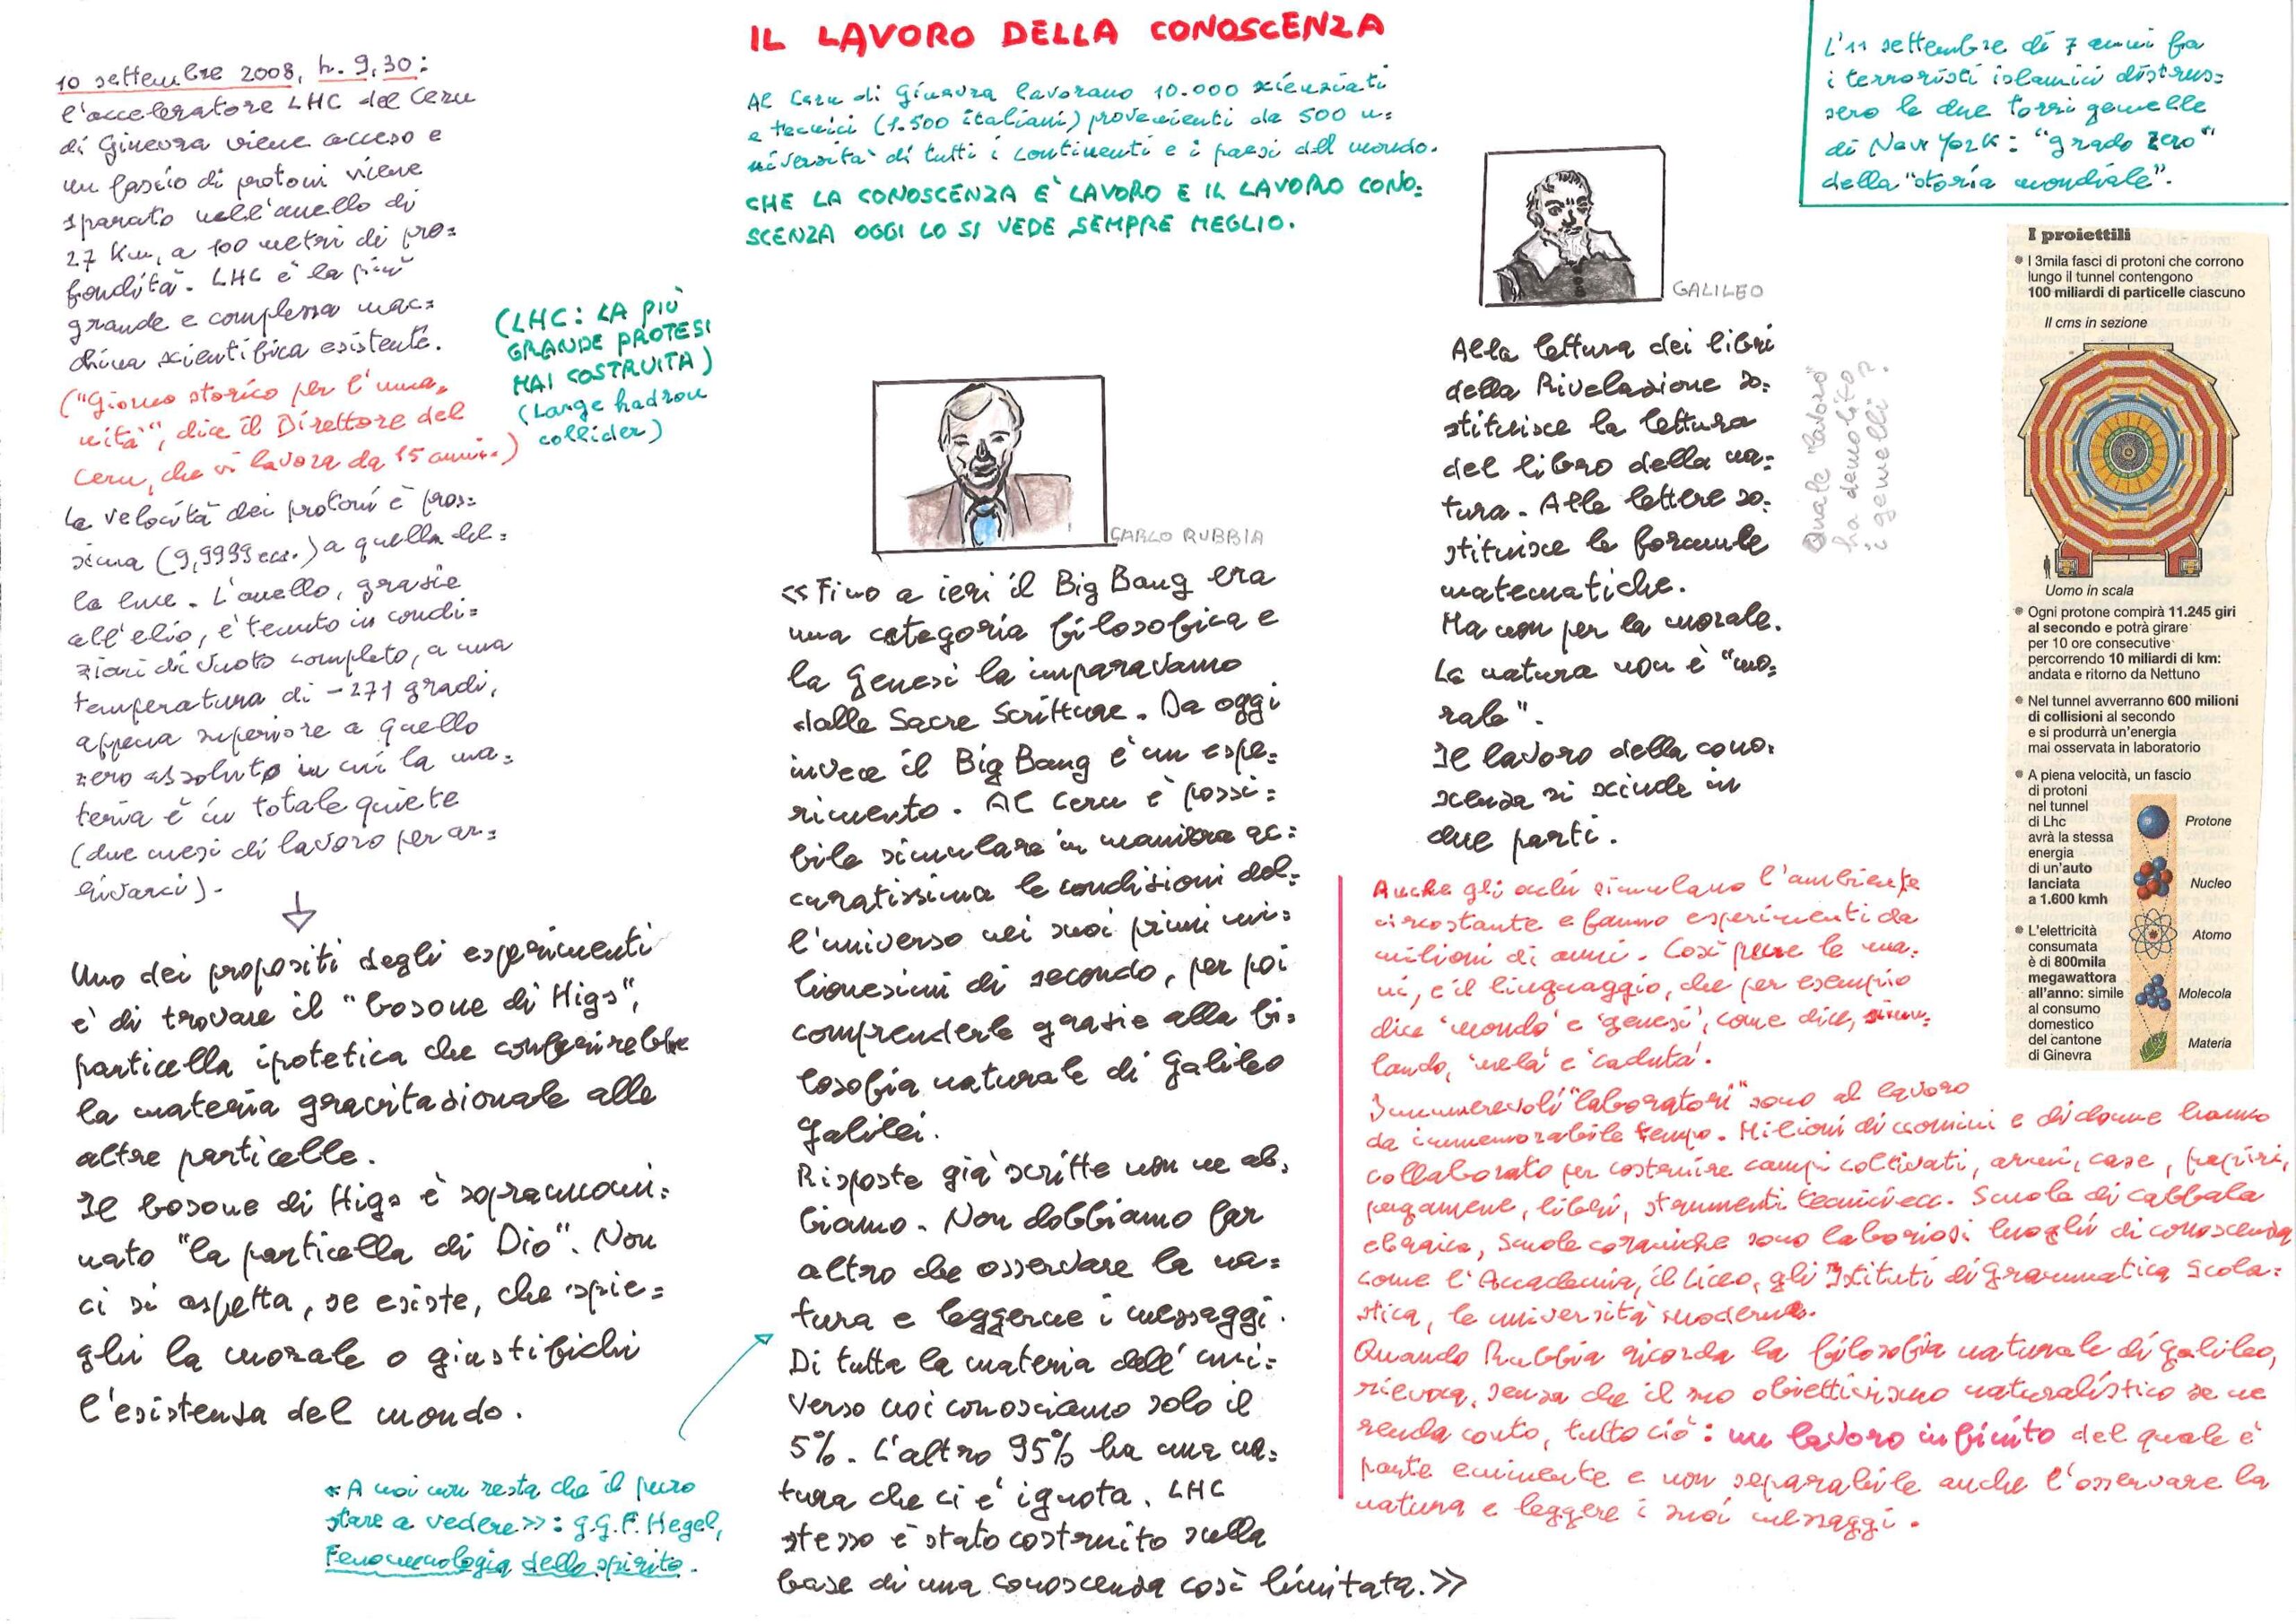 IL LAVORO DELLA CONOSCENZA
10 settembre 2008, h. 9,30:
l'acceleratore LHC del Cern
di Ginevra viene acceso e
un fascio di protoni viene
sparato nell'anello di
27 Km, a 100 metri di pro=
fondità. LHC è la più
grande e complessa mac=
china scientifica esistente.
("Giorno storico per l'uma=
nità", dice il Direttore del
Cern, che vi lavora da 15 anni.)
La velocità dei protoni è pros=
sima (9,9999 ecc.) a quella del=
la luce. L'anello, grazie
all'elio, è tenuto in condi=
zioni di vuoto completo, a una
temperatura di -271 gradi,
appena superiore a quello
zero assoluto in cui la ma=
teria è in totale quiete
(due mesi di lavoro per ar=
rivarci).
Uno dei propositi degli esperimenti
è di trovare il "bosone di Higs",
particella ipotetica che conferirebbe
la materia gravitazionale alle
altre particelle.
Il bosone di Higs è soprannomi=
nato "la particella di Dio". Non
ci si aspetta, se esiste, che spie=
ghi la morale o giustifichi
l'esistenza del mondo.
(LHC: LA PIÙ
GRANDE PROTESI
MAI COSTRUITA)
(Large hadron
collider)
«A noi non resta che il puro
stare a vedere»: G.G.F. Hegel,
Fenomenologia dello spirito.
Al Cern di Ginevra lavorano 10.000 scienziati
e tecnici (1.500 italiani) provenienti da 500 u=
niversità di tutti i continenti e i paesi del mondo.
CHE LA CONOSCENZA E' LAVORO E IL LAVORO CONO=
SCENZA OGGI LO SI VEDE SEMPRE MEGLIO.
CARLO RUBBIA
«Fino a ieri il Big Bang era
una categoria filosofica e
la Genesi la imparavamo
dalle Sacre Scritture. Da oggi
invece il Big Bang è un espe=
rimento. Al Cern è possi=
bile simulare in maniera ac=
curatissima le condizioni del=
l'universo nei suoi primi mi=
lionesimi di secondo, per poi
comprenderle grazie alla fi=
losofia naturale di Galileo
Galilei.
Risposte già scritte non ne ab=
biamo. Non dobbiamo far
altro che osservare la na=
tura e leggerne i messaggi.
Di tutta la materia dell'uni=
verso noi conosciamo solo il
5%. L'altro 95% ha una na=
tura che ci è ignota. LHC
stesso è stato costruito sulla
base di una conoscenza così limitata.»
GALILEO
Alla lettura dei libri
della Rivelazione so=
stituisce la lettura
del libro della na=
tura. Alle lettere so=
stituisce le formule
matematiche.
Ma non per la morale.
La natura non è "mo=
rale".
Il lavoro della cono=
scenza si scinde in
due parti.
Quale "lavoro"
ha demolito
i gemelli?
Anche gli occhi simulano l'ambiente
circostante e fanno esperimenti da
milioni di anni. Così pure le ma=
ni, e il linguaggio, che per esempio
dice 'mondo' e 'genesi', come dice, simu=
lando, 'mela' e 'caduta'.
Innumerevoli "laboratori" sono al lavoro
da immemorabile tempo. Milioni di uomini e di donne hanno
collaborato per costruire campi coltivati, armi, case, papiri,
pergamene, libri, strumenti tecnici ecc. Scuole di cabbala
ebraica, scuole coraniche sono laboriosi luoghi di conoscenza
come l'Accademia, il Liceo, gli Istituti di grammatica scola=
stica, le università moderne.
Quando Rubbia ricorda la filosofia naturale di Galileo,
rievoca, senza che il suo obiettivismo naturalistico se ne
renda conto, tutto ciò: un lavoro infinito del quale è
parte eminente e non separabile anche l'osservare la
natura e leggere i suoi messaggi.
L'11 settembre di 7 anni fa
i terroristi islamici distrus=
sero le due torri gemelle
di New York: "grado zero"
della "storia mondiale".
I proiettili
I 3mila fasci di protoni che corrono
lungo il tunnel contengono
100 miliardi di particelle ciascuno
Il cms in sezione
Uomo in scala
Ogni protone compirà 11.245 giri
al secondo e potrà girare
per 10 ore consecutive
percorrendo 10 miliardi di km:
andata e ritorno da Nettuno
Nel tunnel avverranno 600 milioni
di collisioni al secondo
e si produrrà un'energia
mai osservata in laboratorio
A piena velocità, un fascio
di protoni
nel tunnel
di Lhc
avrà la stessa
energia
di un'auto
lanciata
a 1.600 kmh
L'elettricità
consumata
è di 800mila
megawattora
all'anno: simile
al consumo
domestico
del cantone
di Ginevra
Protone
Nucleo
Atomo
Molecola
Materia